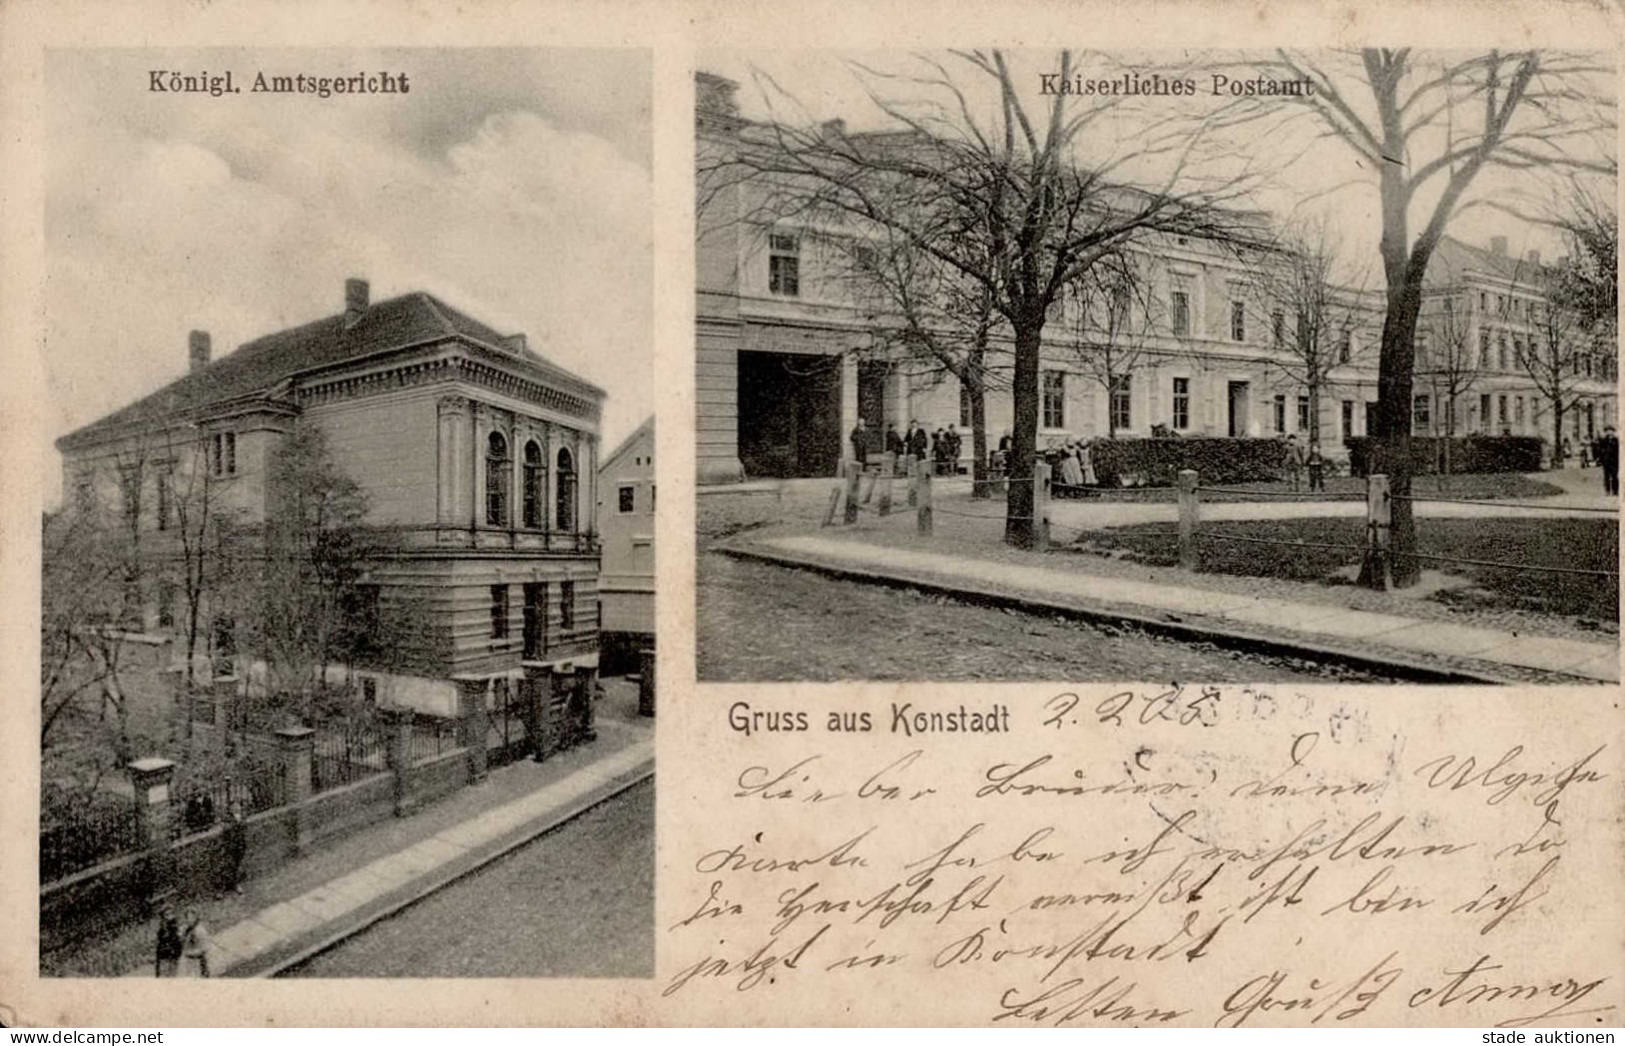 Königl. Amtsgericht
Kaiserliches Postamt
Gruss aus Konstadt 2.2.05
Lieber Bruder! Deine
Karte habe ich erhalten Da
die Herschaft vereißt ist bin ich
jetzt in Konstadt
Besten Gruß
stade auktionen